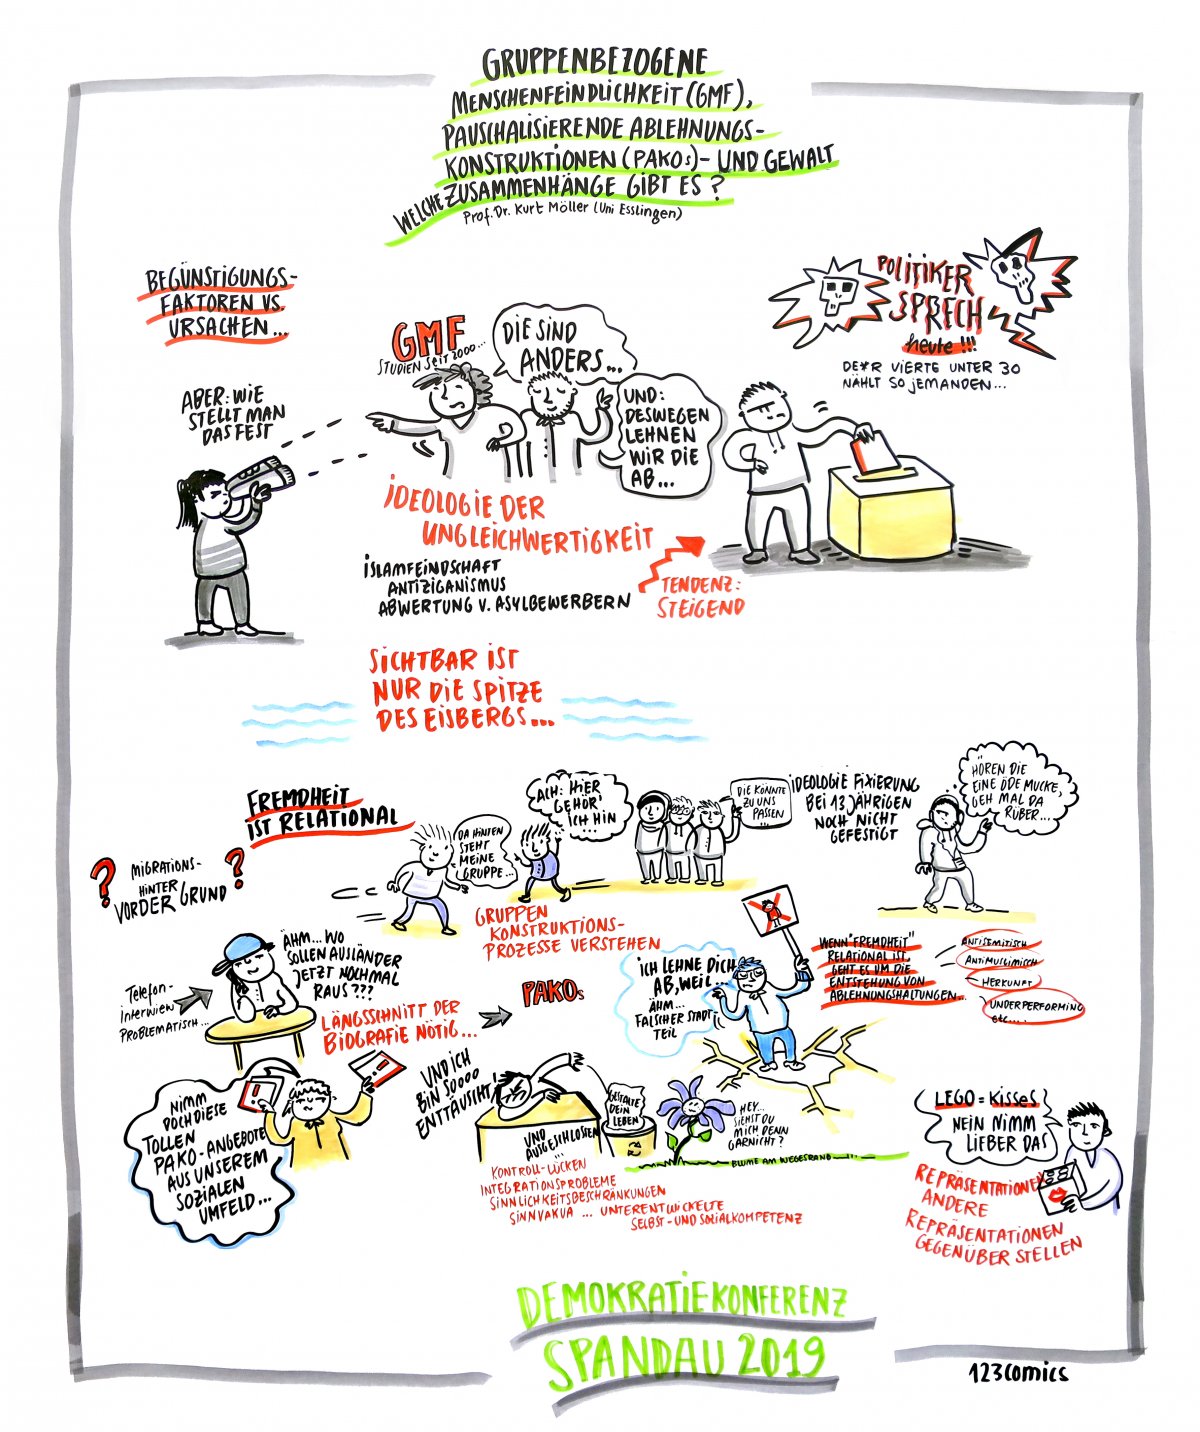 GRUPPENBEZOGENE
MENSCHENFEINDLICHKEIT (GMF),
PAUSCHALISIERENDE ABLEHNUNGS-
KONSTRUKTIONEN (PAKOs)- UND GEWALT
WELCHE ZUSAMMENHÄNGE GIBT ES?
Prof. Dr. Kurt Möller (Uni Esslingen)
BEGÜNSTIGUNGS-
FAKTOREN VS.
URSACHEN...
ABER: WIE
STELLT MAN
DAS FEST
GMF
STUDIEN SEIT 2000...
DIE SIND
ANDERS...
UND:
DESWEGEN
LEHNEN
WIR DIE
AB...
POLITIKER
SPRECH
heute!!!
DE*R VIERTE UNTER 30
NÄHLT SO JEMANDEN...
IDEOLOGIE DER
UNGLEICHWERTIGKEIT
ISLAMFEINDSCHAFT
ANTIZIGANISMUS
ABWERTUNG V. ASYLBEWERBERN
TENDENZ:
STEIGEND
SICHTBAR IST
NUR DIE SPITZE
DES EISBERGS...
FREMDHEIT
IST RELATIONAL
? MIGRATIONS- ?
HINTER
VORDER GRUND
DA HINTEN
STEHT
MEINE
GRUPPE...
ACH: HIER
GEHÖR'
ICH HIN
DIE KÖNNTE
ZU UNS
PASSEN
...
IDEOLOGIE FIXIERUNG
BEI 13 JÄHRIGEN
NOCH NICHT
GEFESTIGT
HÖREN DIE
EINE ÖDE MUCKE,
GEH MAL DA
RÜBER...
GRUPPEN
KONSTRUKTIONS-
PROZESSE VERSTEHEN
Telefon-
interviews
PROBLEMATISCH...
ÄHM... WO
SOLLEN AUSLÄNDER
JETZT NOCHMAL
RAUS???
LÄNGSSCHNITT DER
BIOGRAFIE NÖTIG...
PAKOs
ICH LEHNE DICH
AB, WEIL...
ÄHM...
FALSCHER STADT
TEIL
WENN "FREMDHEIT"
RELATIONAL IST,
GEHT ES UM DIE
ENTSTEHUNG VON
ABLEHNUNGSHALTUNGEN...
ANTISEMITISCH
ANTIMUSLIMISCH
HERKUNFT
UNDERPERFORMING
etc....
NIMM
DOCH DIESE
TOLLEN
PAKO-ANGEBOTE
AUS UNSEREM
SOZIALEN
UMFELD...
!
!
UND ICH
BIN SOOOO
ENTTÄUSCHT!
UND
AUSGESCHLOSSEN
GESTALTE
DEIN
LEBEN
KONTROLL-LÜCKEN
INTEGRATIONSPROBLEME
SINNLICHKEITSBESCHRÄNKUNGEN
SINNVAKUA ... UNTERENTWICKELTE
SELBST- UND SOZIALKOMPETENZ
HEY...
SIEHST DU
MICH DENN
GARNICHT?
BLUME AM WEGESRAND
LEGO = KISSES
NEIN NIMM
LIEBER DAS
REPRÄSENTATIONEN
ANDERE
REPRÄSENTATIONEN
GEGENÜBER STELLEN
DEMOKRATIEKONFERENZ
SPANDAU 2019
123comics